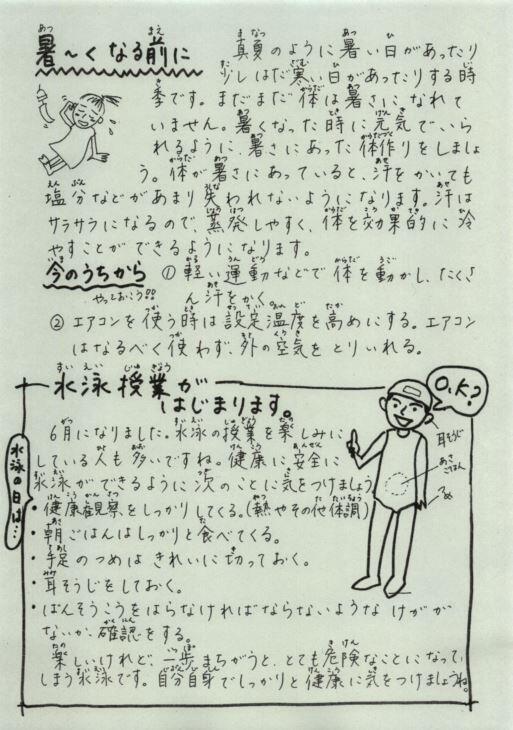 暑～くなる前に
真夏のように暑い日があったり
少しはだ寒い日があったりする時
季です。まだまだ体は暑さになれて
いません。暑くなった時に元気でいら
れるように、暑さにあった体作りをしましょ
う。体が暑さにあっていると、汗をかいても
塩分などがあまり失われないようになります。汗は
サラサラになるので、蒸発しやすく、体を効果的に冷
やすことができるようになります。
今のうちから
やっておこう!!
① 軽い運動などで体を動かし、たくさ
ん汗をかく
② エアコンを使う時は設定温度を高めにする。エアコン
はなるべく使わず、外の空気をとりいれる。
水泳授業が
はじまります。
O.K?
6月になりました。水泳の授業を楽しみに
している人も多いですね。健康に安全に
水泳ができるように次のことに気をつけましょう
水泳の日は…
・健康観察をしっかりしてくる。(熱やその他体調)
・朝ごはんはしっかりと食べてくる。
・手足のつめはきれいに切っておく。
・耳そうじをしておく。
・ばんそうこうをはらなければならないようなけがが
ないか、確認をする。
楽しいけれど、一歩まちがうと、とても危険なことになって
しまう水泳です。自分自身でしっかりと健康に気をつけましょうね。
耳そうじ
あさごはん
つめ